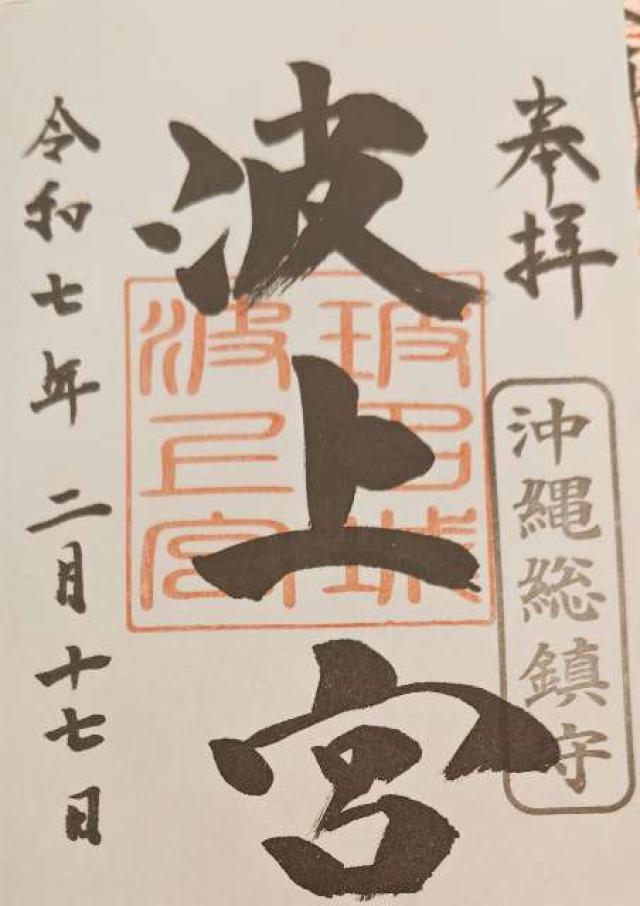 奉拝
沖縄総鎮守
波上宮
波上宮
令和七年 二月十七日